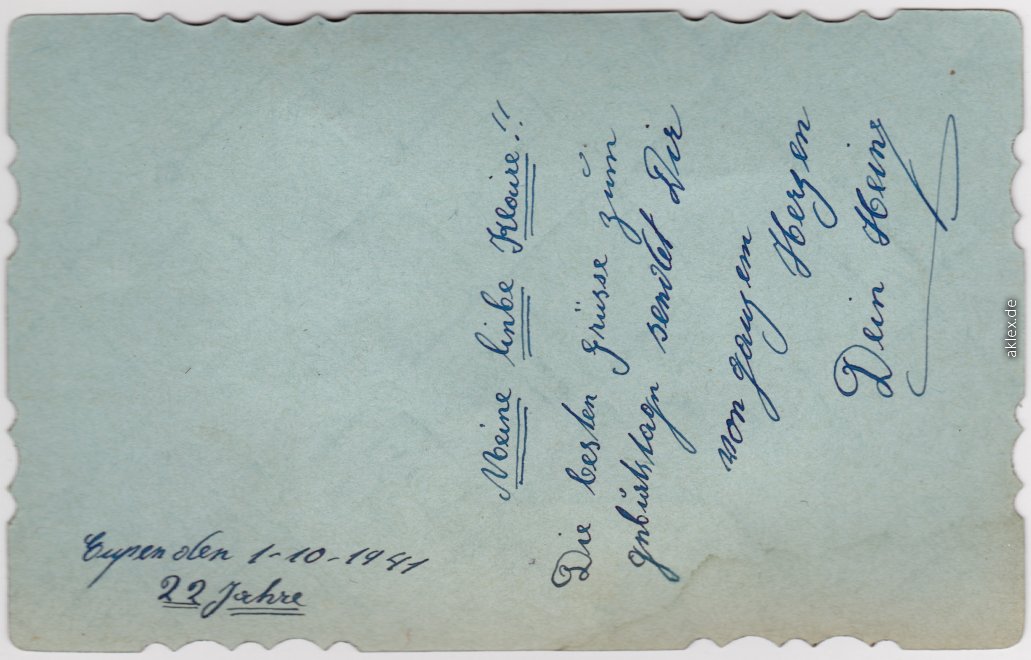 Meine liebe Kläire!!
Die besten Grüsse zum
geburtstage sendet Dir
von ganzem Herzen
Dein Heinz
Eupen den 1-10-1941
22 Jahre
aklex.de